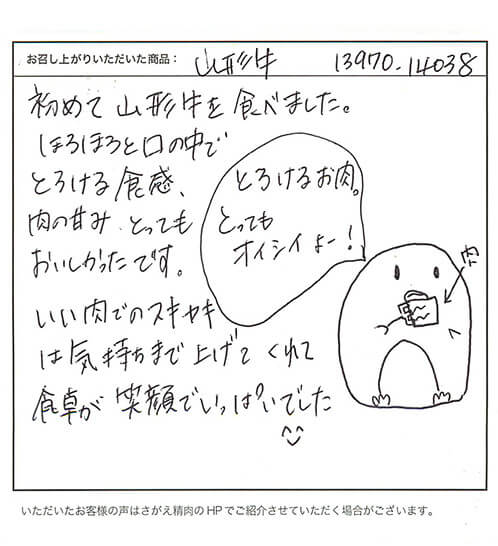 お召し上がりいただいた商品： 山形牛 13970-14038
初めて山形牛を食べました。
ほろほろと口の中で
とろける食感、
肉の甘み とっても
おいしかったです。
いい肉でのスキヤキ
は気持ちまで上げてくれて
食卓が笑顔でいっぱいでした
とろけるお肉。
とっても
オイシイよー！
肉
いただいたお客様の声はさがえ精肉のHPでご紹介させていただく場合がございます。